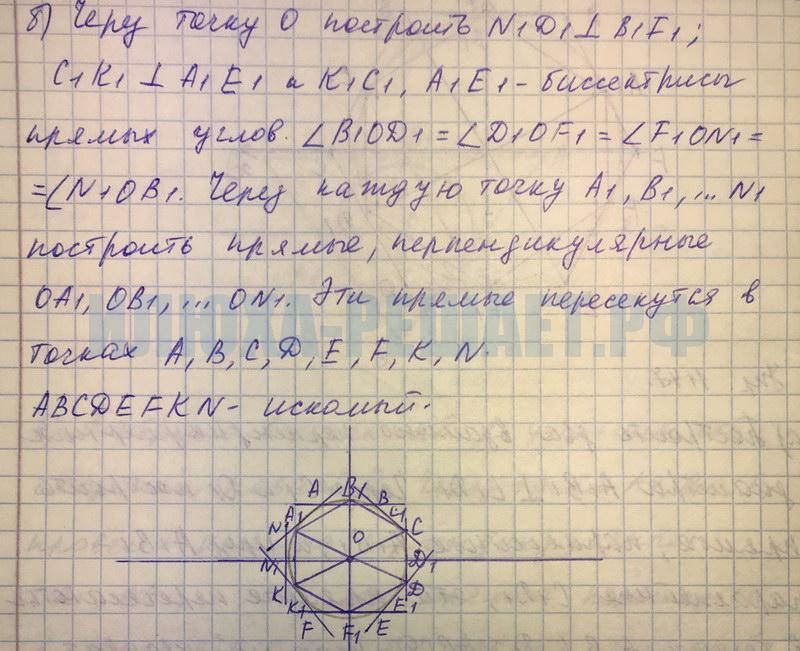 б) Через точку О построить N1D1⊥B1F1;
C1K1⊥A1E1 и K1C1, A1E1 - биссектрисы
прямых углов. ∠B1OD1=∠D1OF1=∠F1ON1=
=∠N1OB1. Через каждую точку A1, B1, ... N1
построить прямые, перпендикулярные
OA1, OB1, ... ON1. Эти прямые пересекутся в
точках A, B, C, D, E, F, K, N.
ABCDEFKN - искомый.
ИЛЮХА-РЕШАЕТ.РФ
A B1 B
A1 C1 C
N O
N1 D1
K D
K1 E1
F F1 E